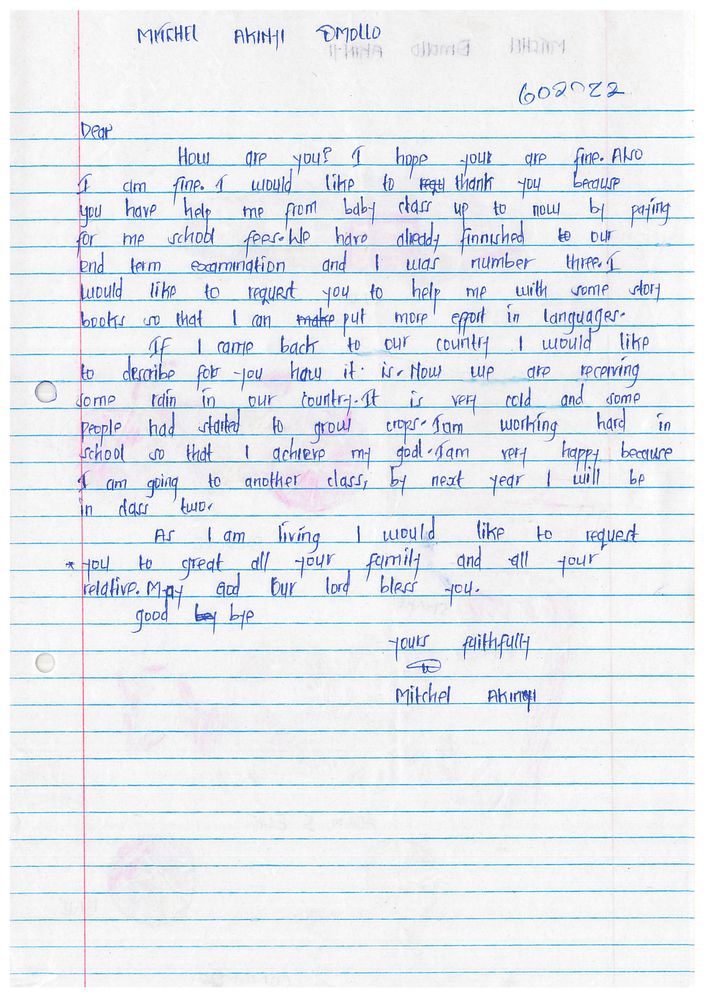 MITCHEL AKINYI OMOLLO
602022
Dear
How are you? I hope your are fine. Also
I am fine. I would like to thank you because
you have help me from baby class up to now by paying
for me school fees. We have already finnished to our
end term examination and I was number three. I
would like to request you to help me with some story
books so that I can make put more effort in languages.
If I came back to our country I would like
to describe for you how it is. Now we are receiving
some rain in our country. It is very cold and some
people had started to grow crops. Iam working hard in
school so that I achieve my goal. Iam very happy because
I am going to another class, by next year I will be
in class two.
As I am living I would like to request
* you to great all your family and all your
relative. May God Our lord bless you.
good by bye
yours faithfully
Mitchel Akinyi